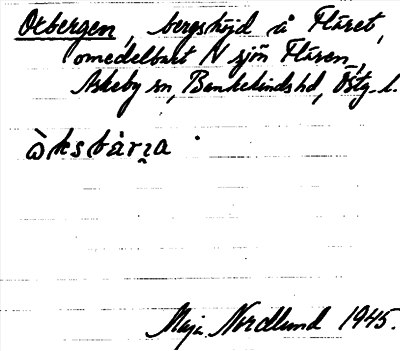 Oxbergen, bergshöjd å Fläret,
omedelbart N sjön Flären,
Askeby sn, Bankekinds hd, Östg. l.
Maja Nordlund 1945.